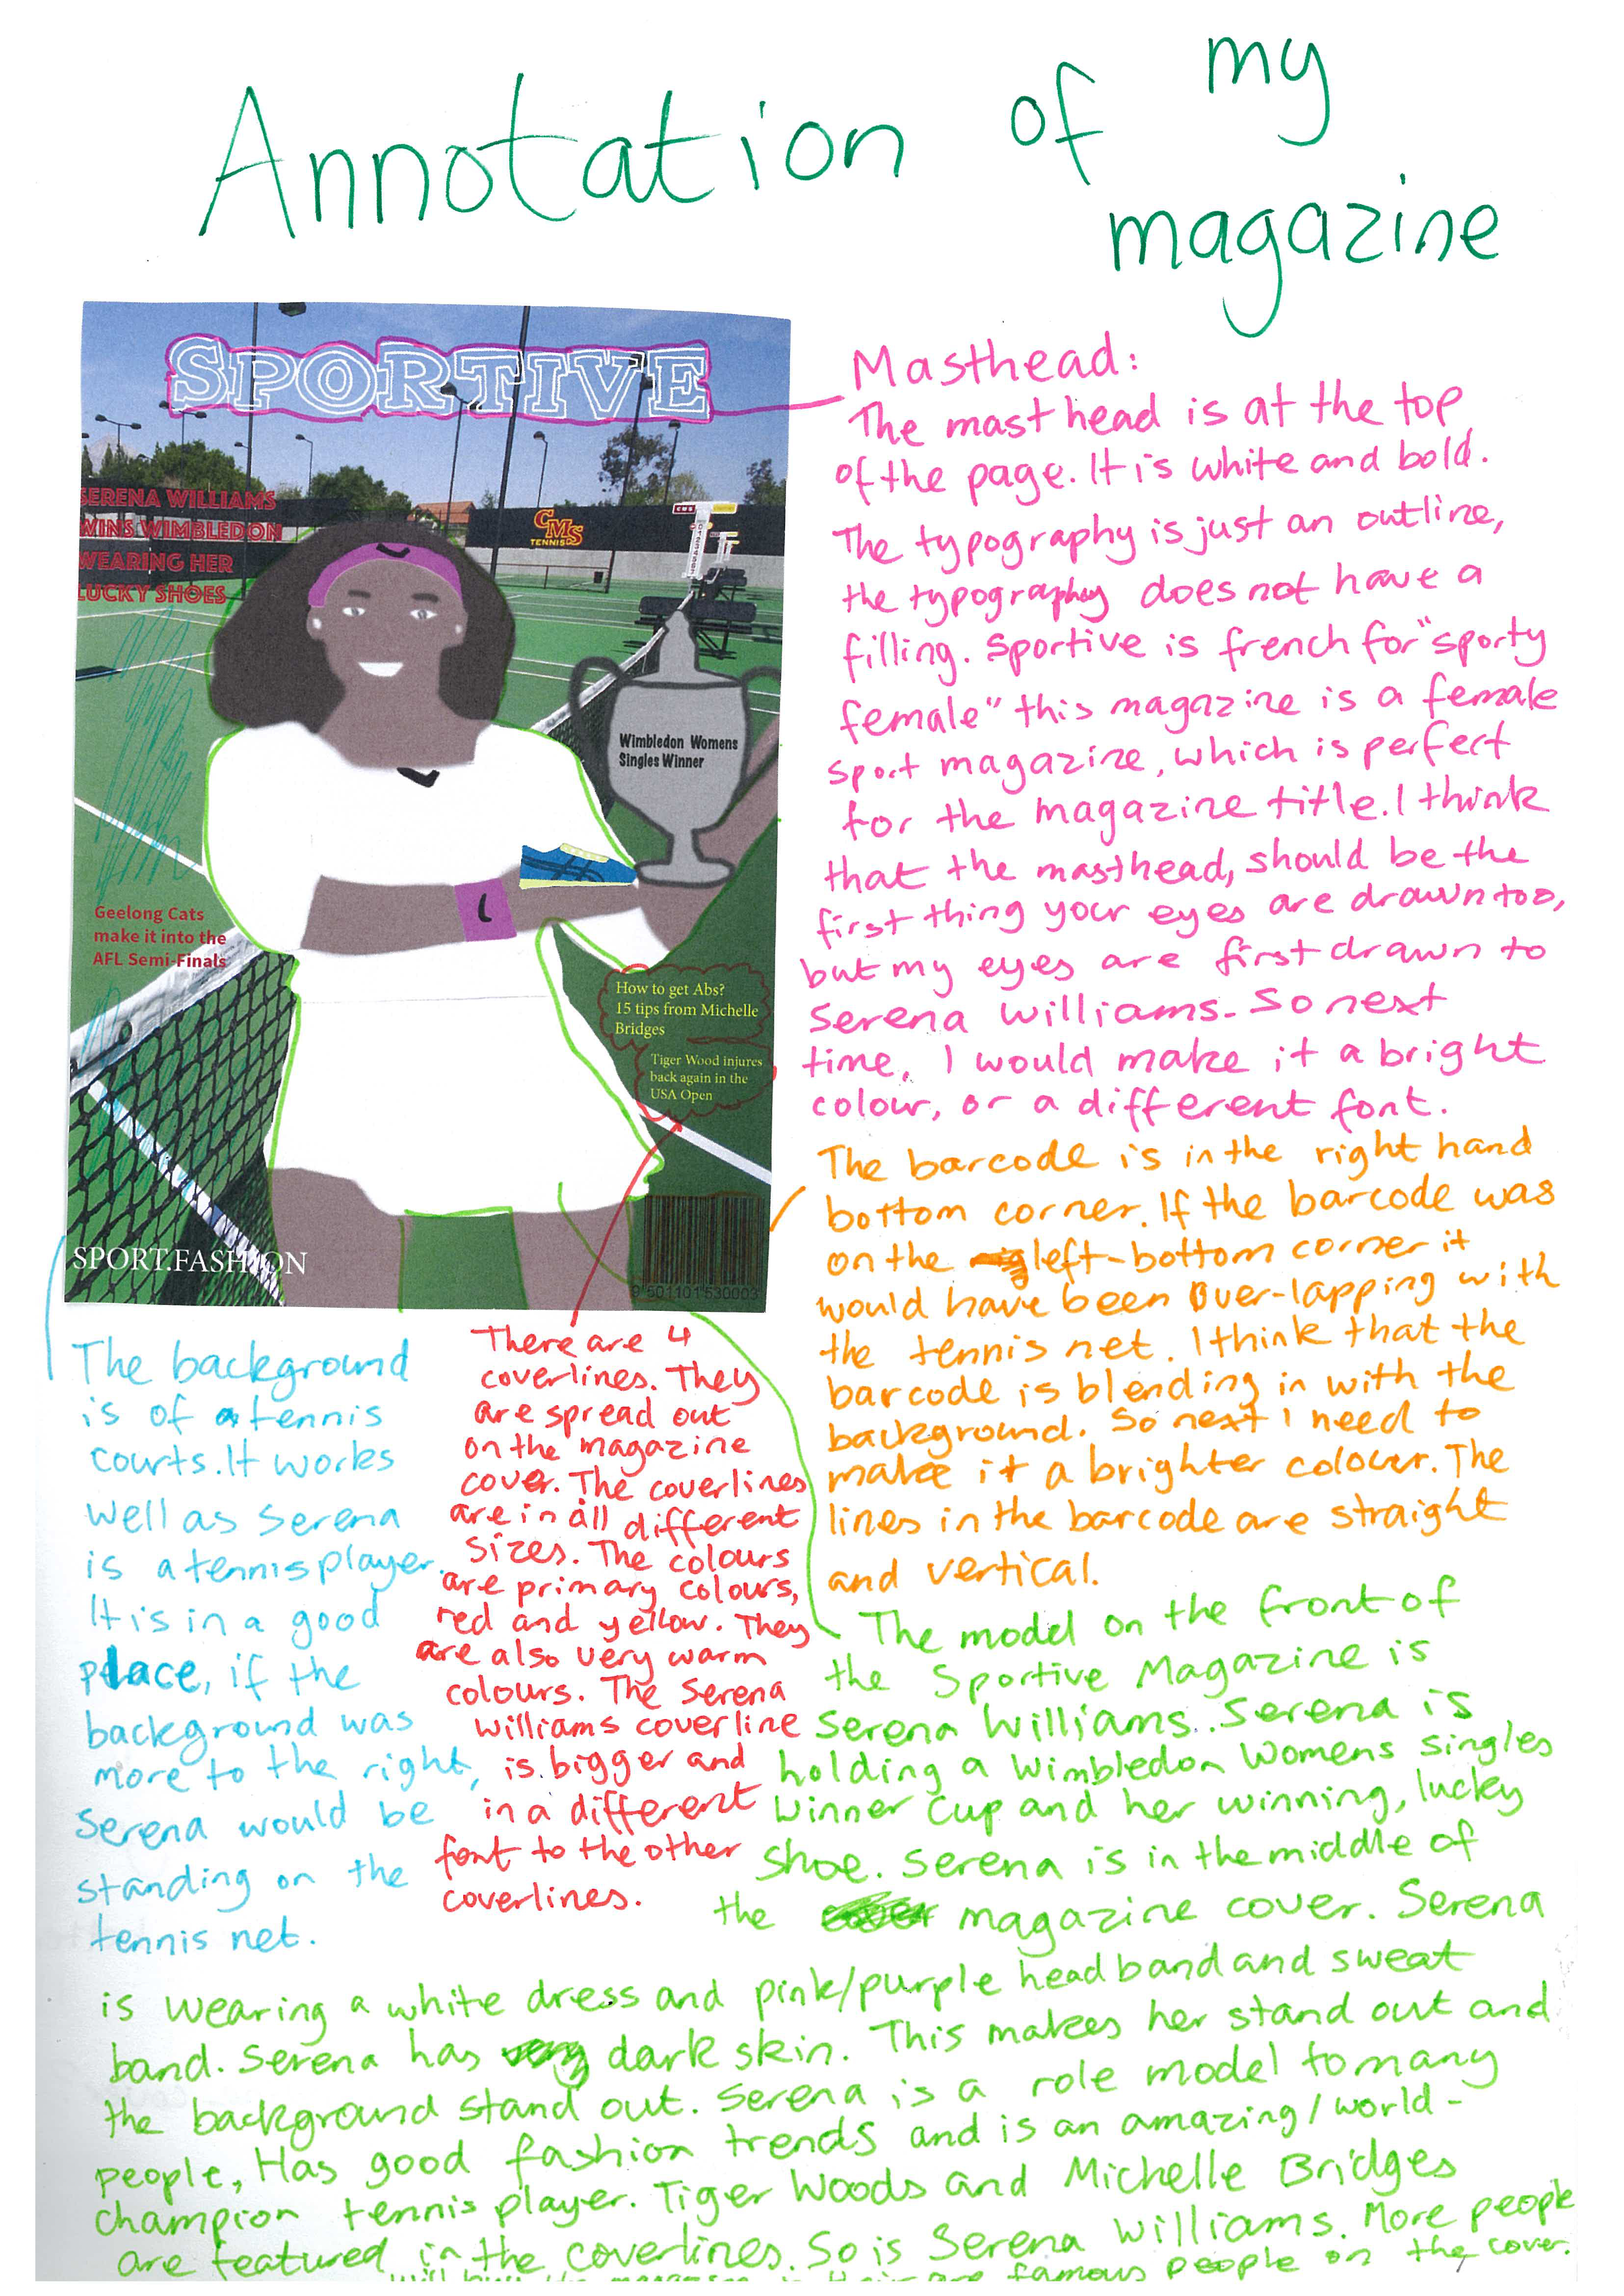 Annotation of my
magazine
SPORTIVE
SERENA WILLIAMS
WINS WIMBLEDON
WEARING HER
LUCKY SHOES
CMS
TENNIS
Wimbledon Womens
Singles Winner
Geelong Cats
make it into the
AFL Semi-Finals
How to get Abs?
15 tips from Michelle
Bridges
Tiger Wood injures
back again in the
USA Open
SPORT.FASHION
9 501101 530003
Masthead:
The mast head is at the top
of the page. It is white and bold.
The typography is just an outline,
the typography does not have a
filling. Sportive is french for "sporty
female" this magazine is a female
sport magazine, which is perfect
for the magazine title. I think
that the masthead, should be the
first thing your eyes are drawn too,
but my eyes are first drawn to
Serena Williams. So next
time, I would make it a bright
colour, or a different font.
The barcode is in the right hand
bottom corner. If the barcode was
on the left-bottom corner it
would have been over-lapping with
the tennis net. I think that the
barcode is blending in with the
background. So next I need to
make it a brighter colour. The
lines in the barcode are straight
and vertical.
The background
is of tennis
courts. It works
well as Serena
is a tennis player.
It is in a good
place, if the
background was
more to the right,
Serena would be
standing on the
tennis net.
There are 4
coverlines. They
are spread out
on the magazine
cover. The coverlines
are in all different
sizes. The colours
are primary colours,
red and yellow. They
are also very warm
colours. The Serena
Williams coverline
is bigger and
in a different
font to the other
coverlines.
The model on the front of
the Sportive Magazine is
Serena Williams. Serena is
holding a Wimbledon Womens singles
Winner Cup and her winning, lucky
shoe. Serena is in the middle of
the magazine cover. Serena
is wearing a white dress and pink/purple head band and sweat
band. Serena has dark skin. This makes her stand out and
the background stand out. Serena is a role model to many
people, Has good fashion trends and is an amazing/world-
champion tennis player. Tiger Woods and Michelle Bridges
are featured in the coverlines. So is Serena Williams. More people
will buy the magazine if their are famous people on the cover.